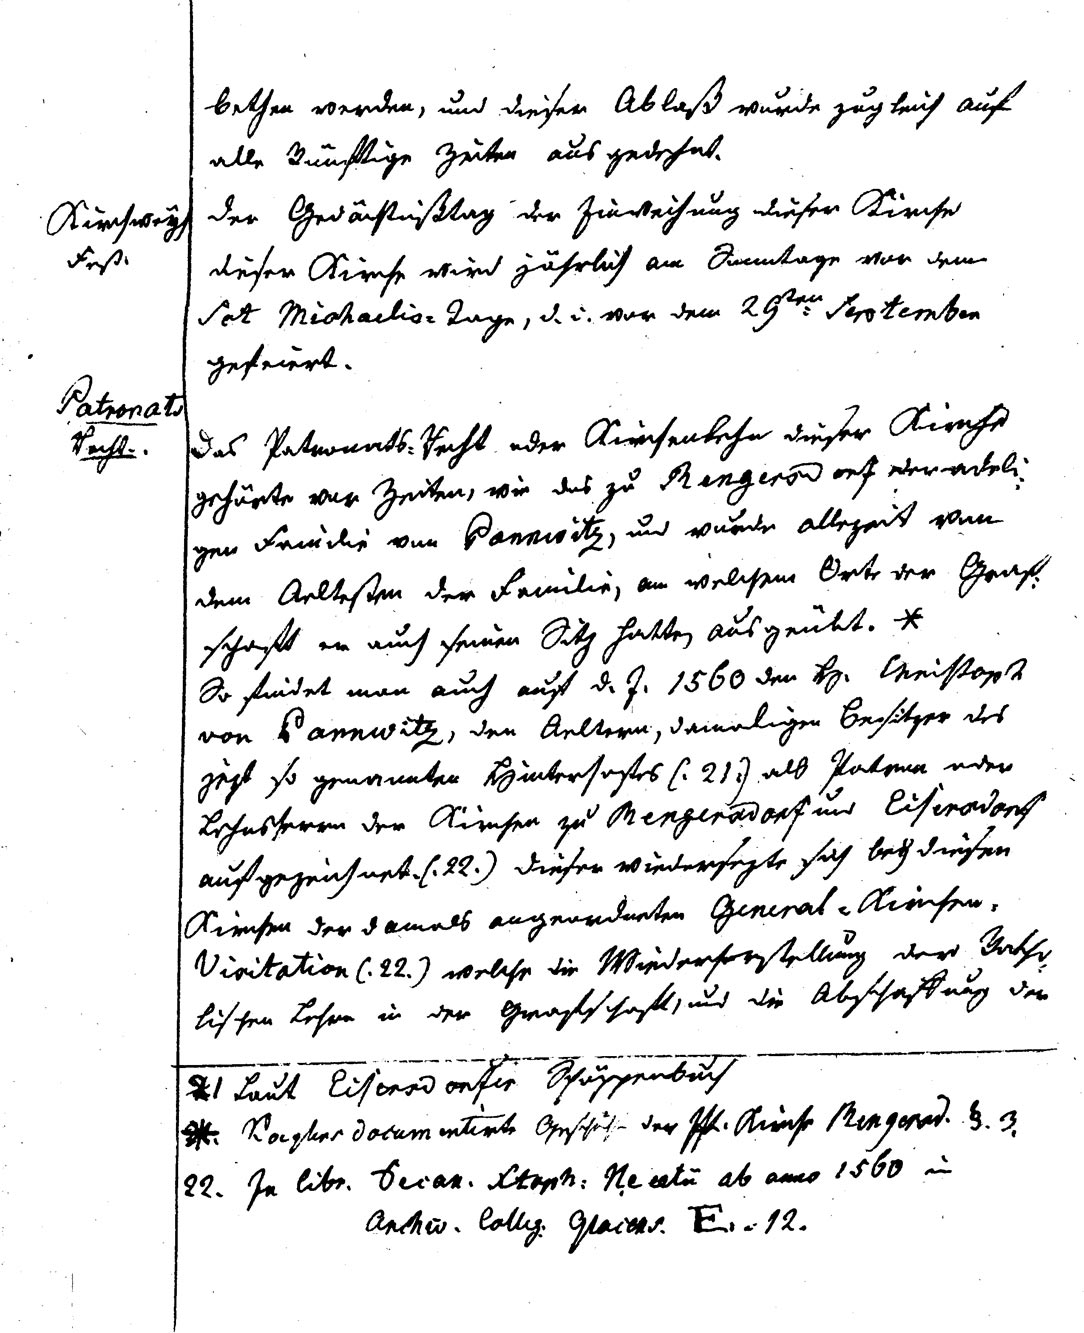 bethen werden, und dieser Ablaß wurde zugleich auf
alle künftige Zeiten ausgedehnt.
Kirchweyh
Fest.
der Gedächtnißtag der Einweihung dieser Kirche
dieser Kirche wird jährlich am Sonntage vor dem
Sct Michaelis=Tage, d. i. vor dem 29sten: September
gefeiert.
Patronats
Recht.
Das Patronats=Recht oder Kirchenlehn dieser Kirche
gehörte vor Zeiten, wie das zu Rengersdorf der adeli=
gen Familie von Pannwitz, und wurde allezeit von
dem Aeltesten der Familie, an welchem Orte der Graf=
schaft er auch seinen Sitz hatte, ausgeübt. *
So findet man auch auf d. J. 1560 den H. Christoph
von Pannwitz, den Aeltern, damaligen Besitzer des
jezt so genannten Hinterhofes (. 21.) als Patron oder
Lehnsherrn der Kirchen zu Rengersdorf und Eisersdorf
aufgezeichnet. (. 22.) dieser wiedersezte sich bey diesen
Kirchen der damals angeordneten General=Kirchen=
Visitation (. 22.) welche die Wiederherstellung der Katho=
lischen Lehre in der Grafschaft, und die Abschaffung der
21 Laut Eisersdorfer Schöppenbuch
*. Koglers documentirte Geschichte der Pf. Kirche Rengersd. §. 3.
22. In libr. Decan. Xtoph: Neaetii ab anno 1560 in
Archiv. Colleg. Glacens. E. . 12.